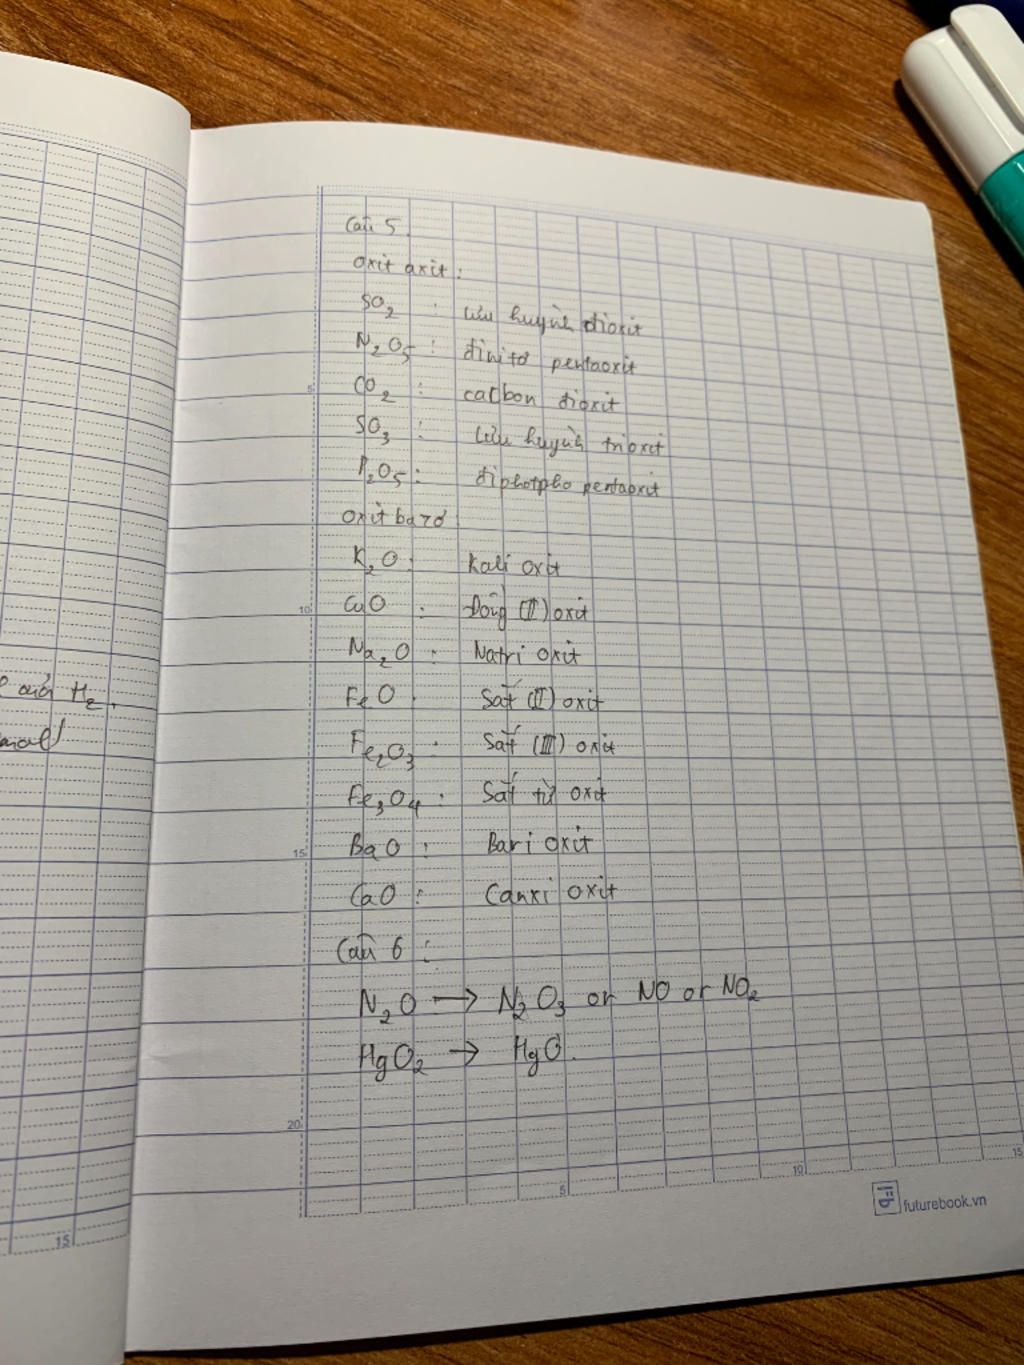 của H₂.
Câu 5.
oxit axit:
SO₂ : lưu huỳnh đioxit
N₂O₅ : đinitơ pentaoxit
CO₂ : cacbon đioxit
SO₃ : lưu huỳnh trioxit
P₂O₅ : điphotpho pentaoxit
oxit bazơ
K₂O : Kali oxit
CuO : Đồng (II) oxit
Na₂O : Natri oxit
FeO : Sắt (II) oxit
Fe₂O₃ : Sắt (III) oxit
Fe₃O₄ : Sắt từ oxit
BaO : Bari oxit
CaO : Canxi oxit
Câu 6 :
N₂O → N₂O₃ or NO or NO₂
HgO₂ → HgO.
5
10
15
20
5
10
15
15
futurebook.vn